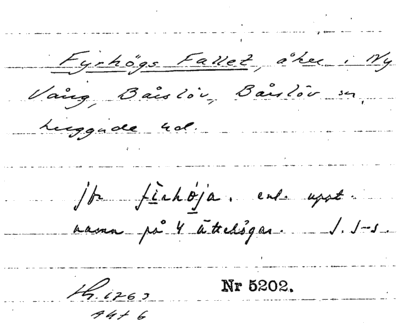 Fyrhögs Fallet, åker i Ny
Vång, Bårslöv, Bårslöv sn,
Luggude hd.
jfr firhöja. enl. uppt.
namn på 4 ättehögar. J. S-s.
Nr 5202.